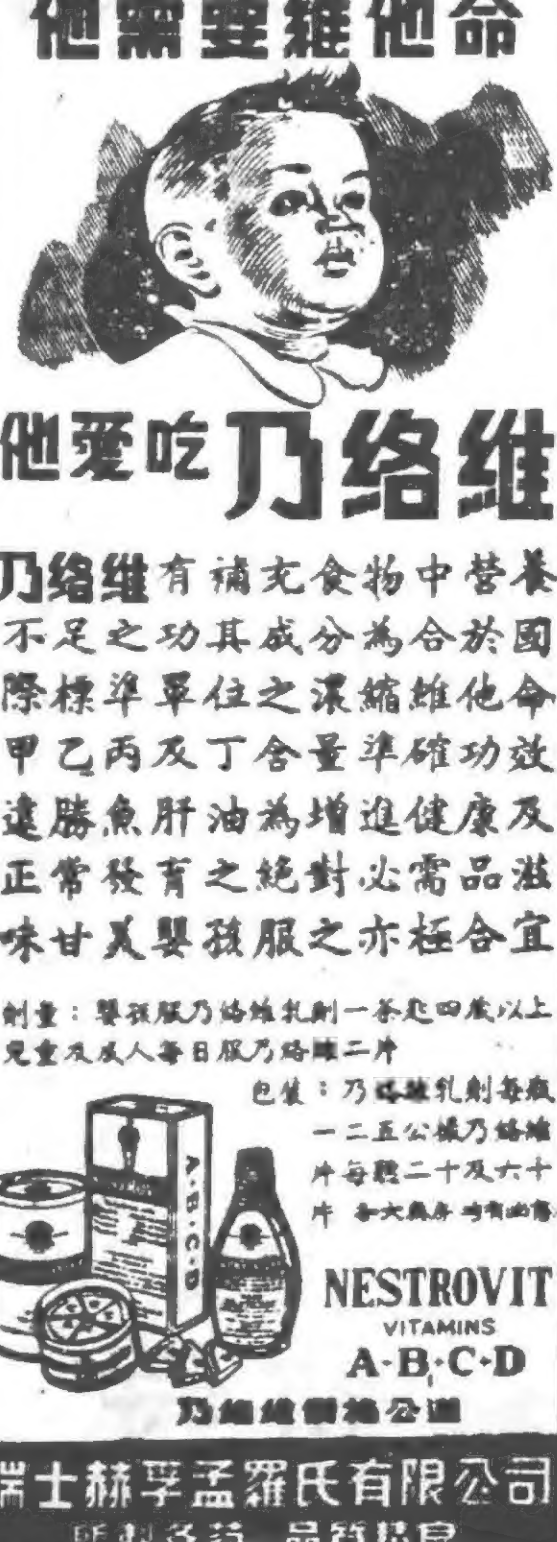 他需要維他命
他愛吃乃絡維
乃絡維有補充食物中營養
不足之功其成分為合於國
際標準單位之濃縮維他命
甲乙丙及丁含量準確功效
遠勝魚肝油為增進健康及
正常發育之絕對必需品滋
味甘美嬰孩服之亦極合宜
劑量：嬰孩服乃絡維乳劑一茶匙四歲以上
兒童及成人每日服乃絡維二片
包裝：乃絡維乳劑每瓶
一二五公撮乃絡維
片每聽二十及六十
片 各大藥房均有出售
A·B·C·D
NESTROVIT
VITAMINS
A·B·C·D
乃絡維價格公道
瑞士赫孚孟羅氏有限公司
品質精良